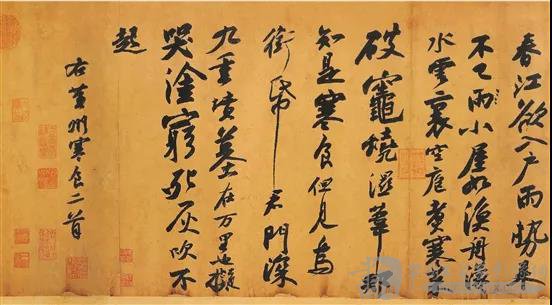 春江欲入户雨勢來
不已雨小屋如漁舟濛々
水雲裏空庖煮寒菜
破竈燒濕葦那
知是寒食但見烏
銜帋君門深
九重墳墓在万里也擬
哭塗窮死灰吹不
起
右黄州寒食二首